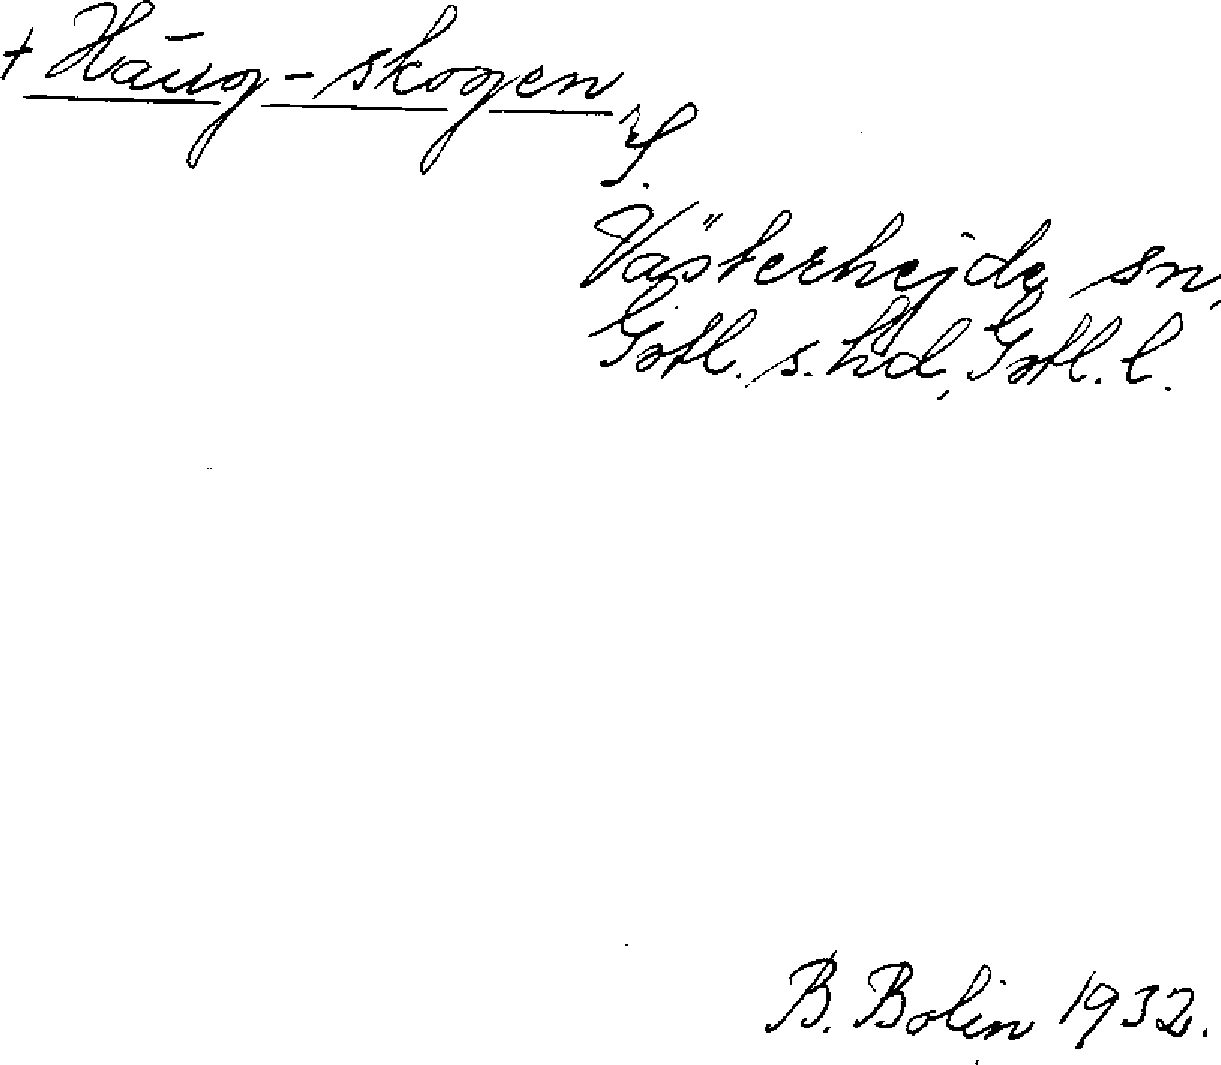 + Haūg-skogen
f.
Västerhejde sn,
Gotl. s. hd, Gotl. l.
B. Bolin 1932.